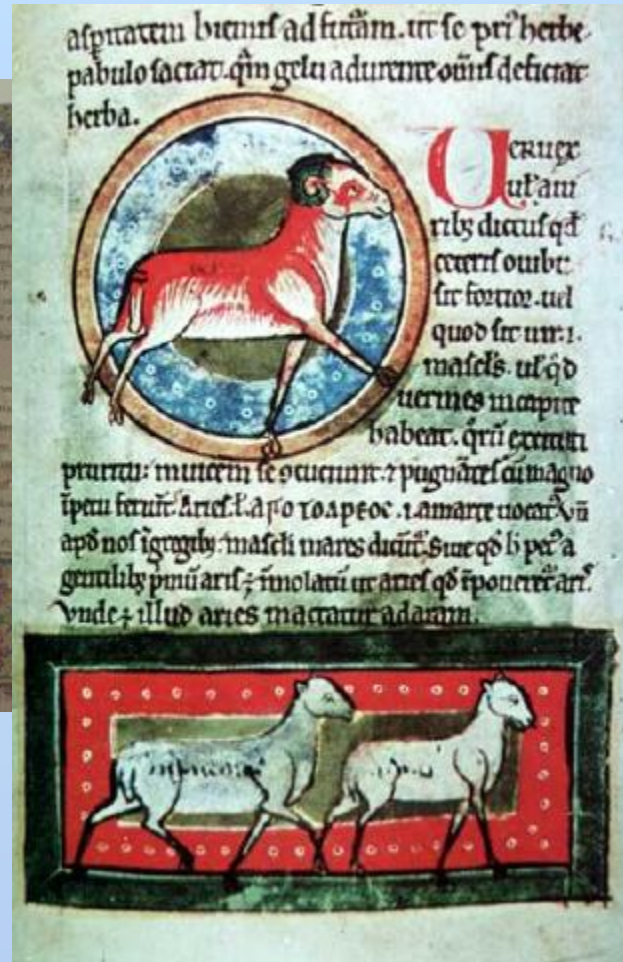 asperitatem hiemis ad futām. ut se pri᾿ herbe
pabulo saciat. qm̄ gelu adurente om̄is deficiat
herba.
Ueruex
ul᾿ a uiri
ribȝ dictus qd̄
ceteris ouibȝ
sit fortior. uel
quod sit uir .i.
mascl᾿s. ul᾿ qd̄
uermes in capite
habeat. qr̄ū excitati
pruritu: inuicem se ɔcuciunt. ⁊ pugnātes cū magno
īpetu feriūt. Aries. ł. ΑΡΟΤΟΑΡΕΟC .i. a marte uocat᾿. Vn̄
apd̄ nos ī gregibȝ mascli mares dicūt᾿. Siue qd̄ h̄ pec᾿ a
gentilibȝ p̄mū aris ÷ īmolatū ut aries qd̄ īponeret᾿ aris.
Vnde ÷ illud aries mactatur ad aram.